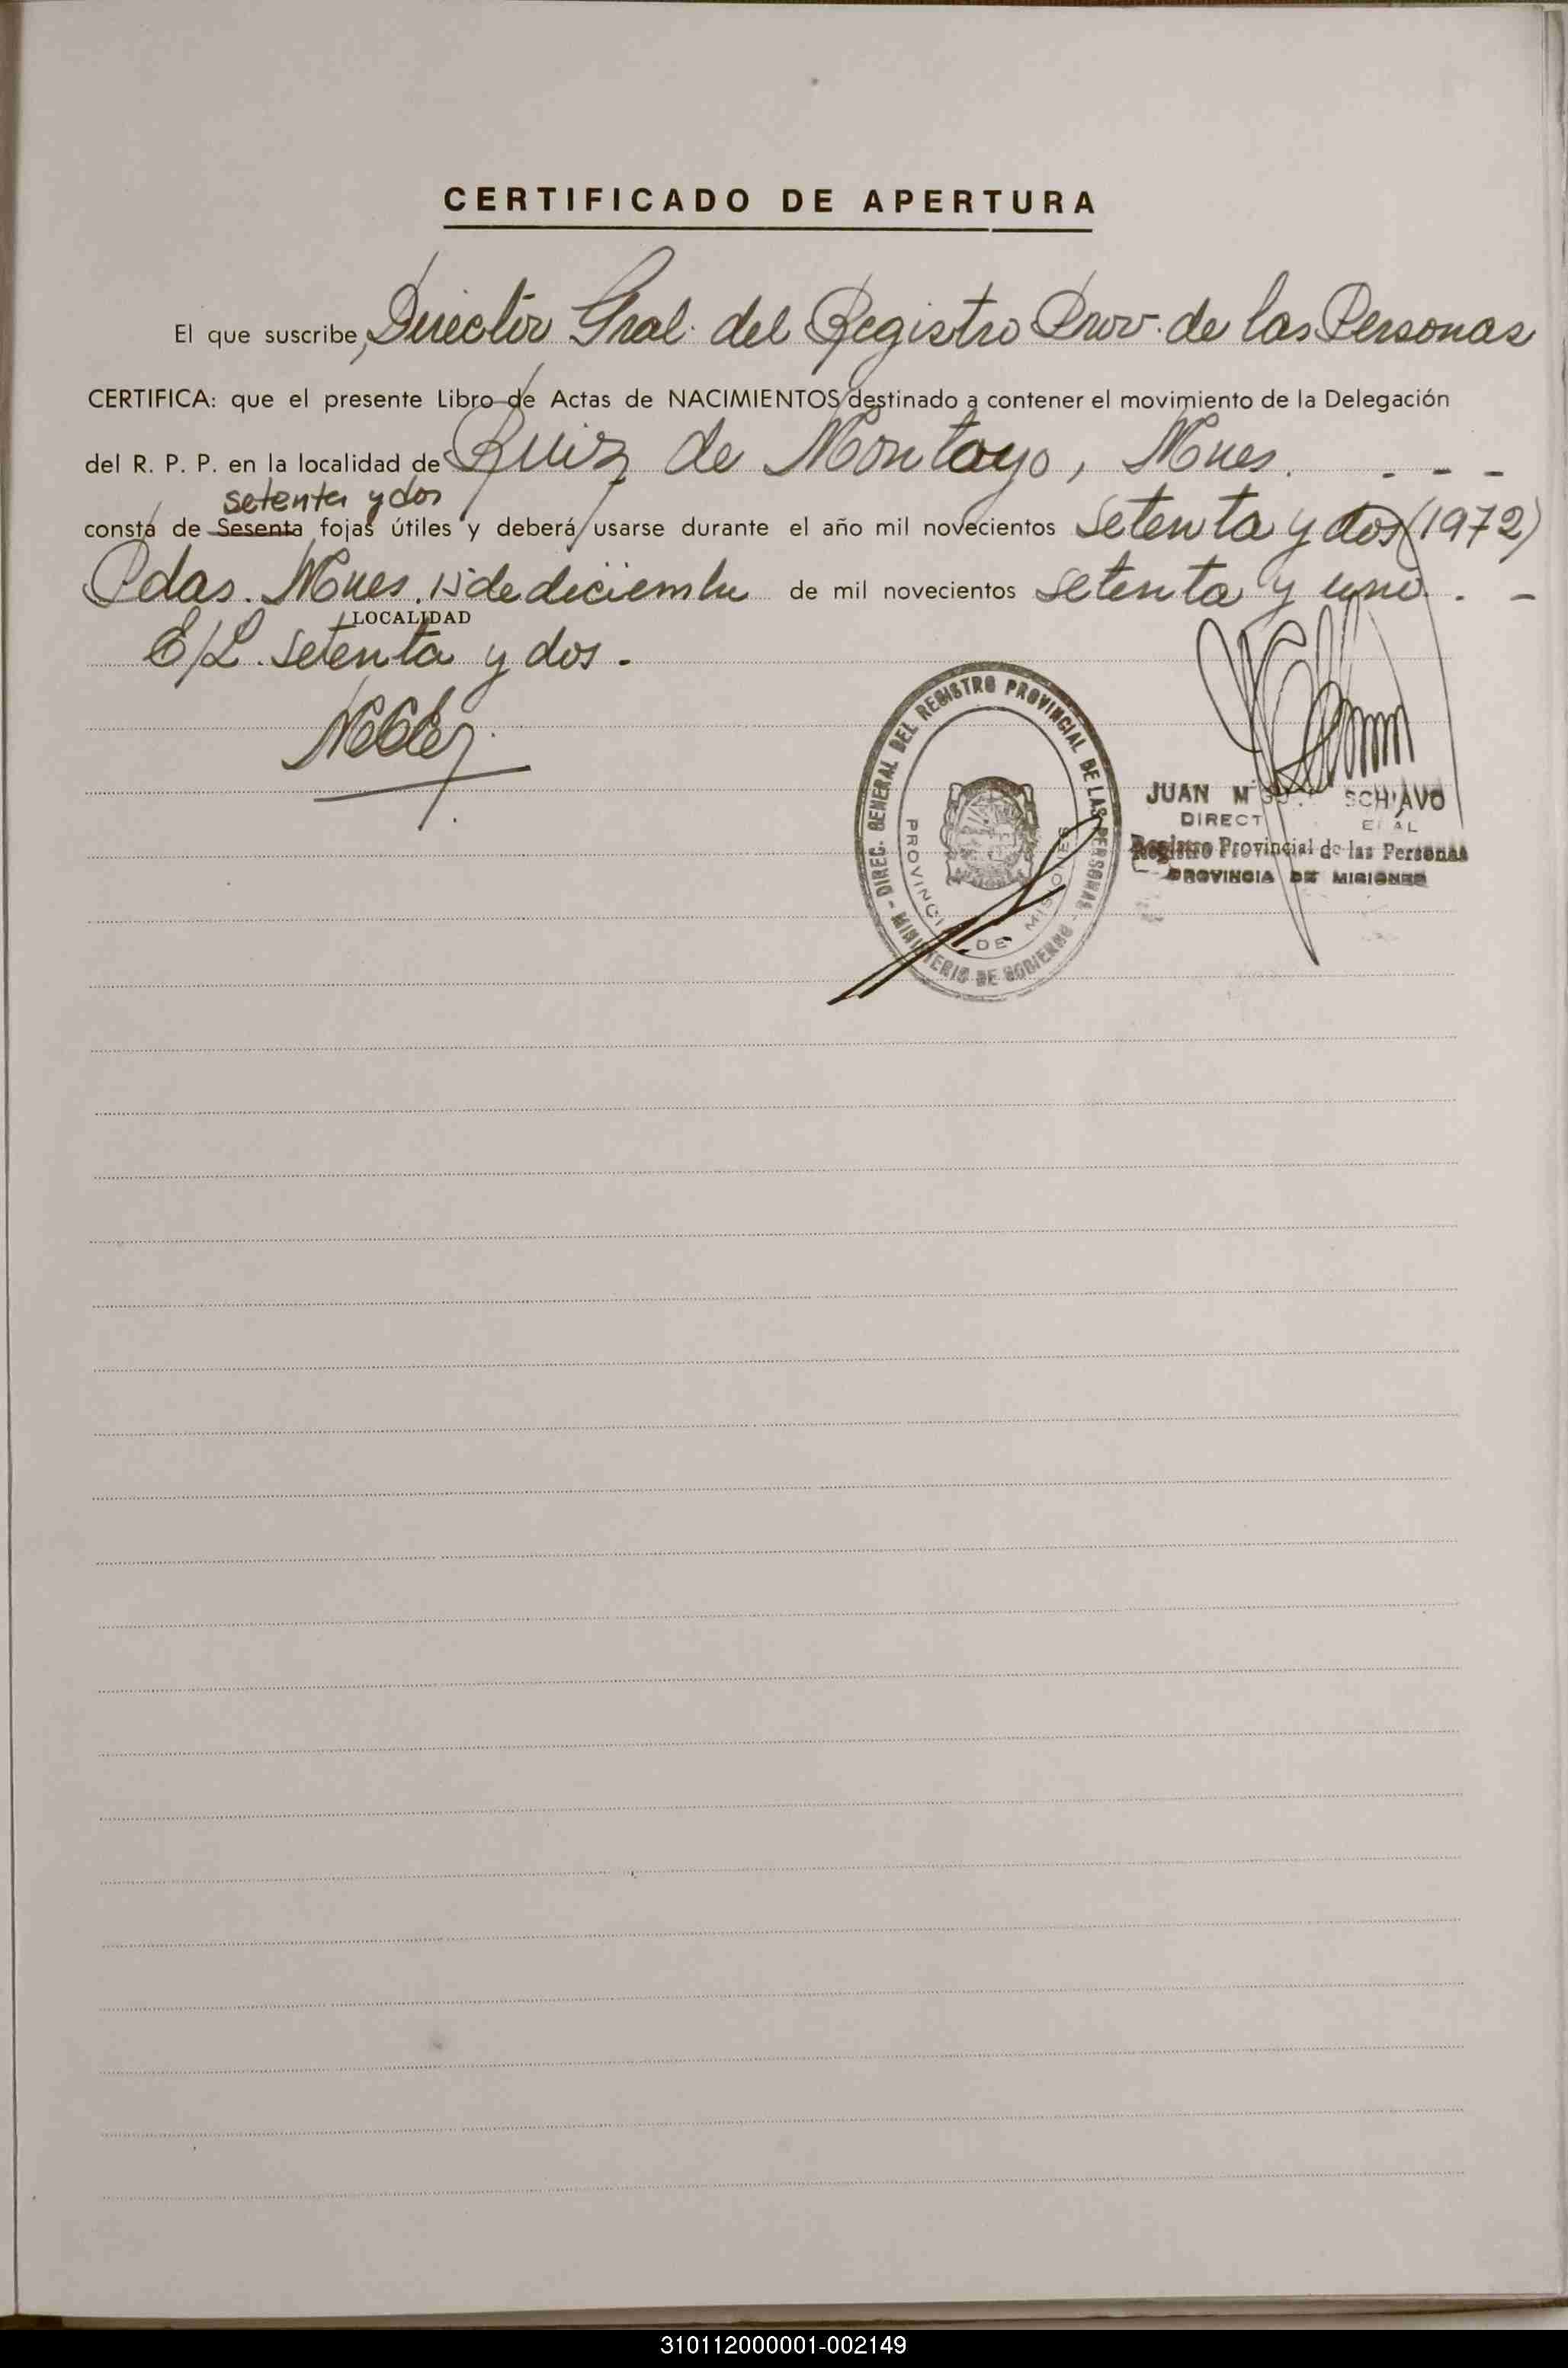 CERTIFICADO DE APERTURA
El que suscribe, Director Gral. del Registro Prov. de las Personas
CERTIFICA: que el presente Libro de Actas de NACIMIENTOS destinado a contener el movimiento de la Delegación
del R. P. P. en la localidad de Ruiz de Montoyo, Mnes. - - -
setenta y dos
consta de Sesenta fojas útiles y deberá usarse durante el año mil novecientos setenta y dos (1972)
Pdas. Mnes. 15 de diciembre de mil novecientos setenta y uno. - -
LOCALIDAD
E/L. setenta y dos.
DIREC. GENERAL DEL REGISTRO PROVINCIAL DE LAS PERSONAS - MINISTERIO DE GOBIERNO -
PROVINCIA DE MISIONES
JUAN SCHIAVO
DIRECT
Registro Provincial de las Personas
PROVINCIA DE MISIONES
310112000001-002149